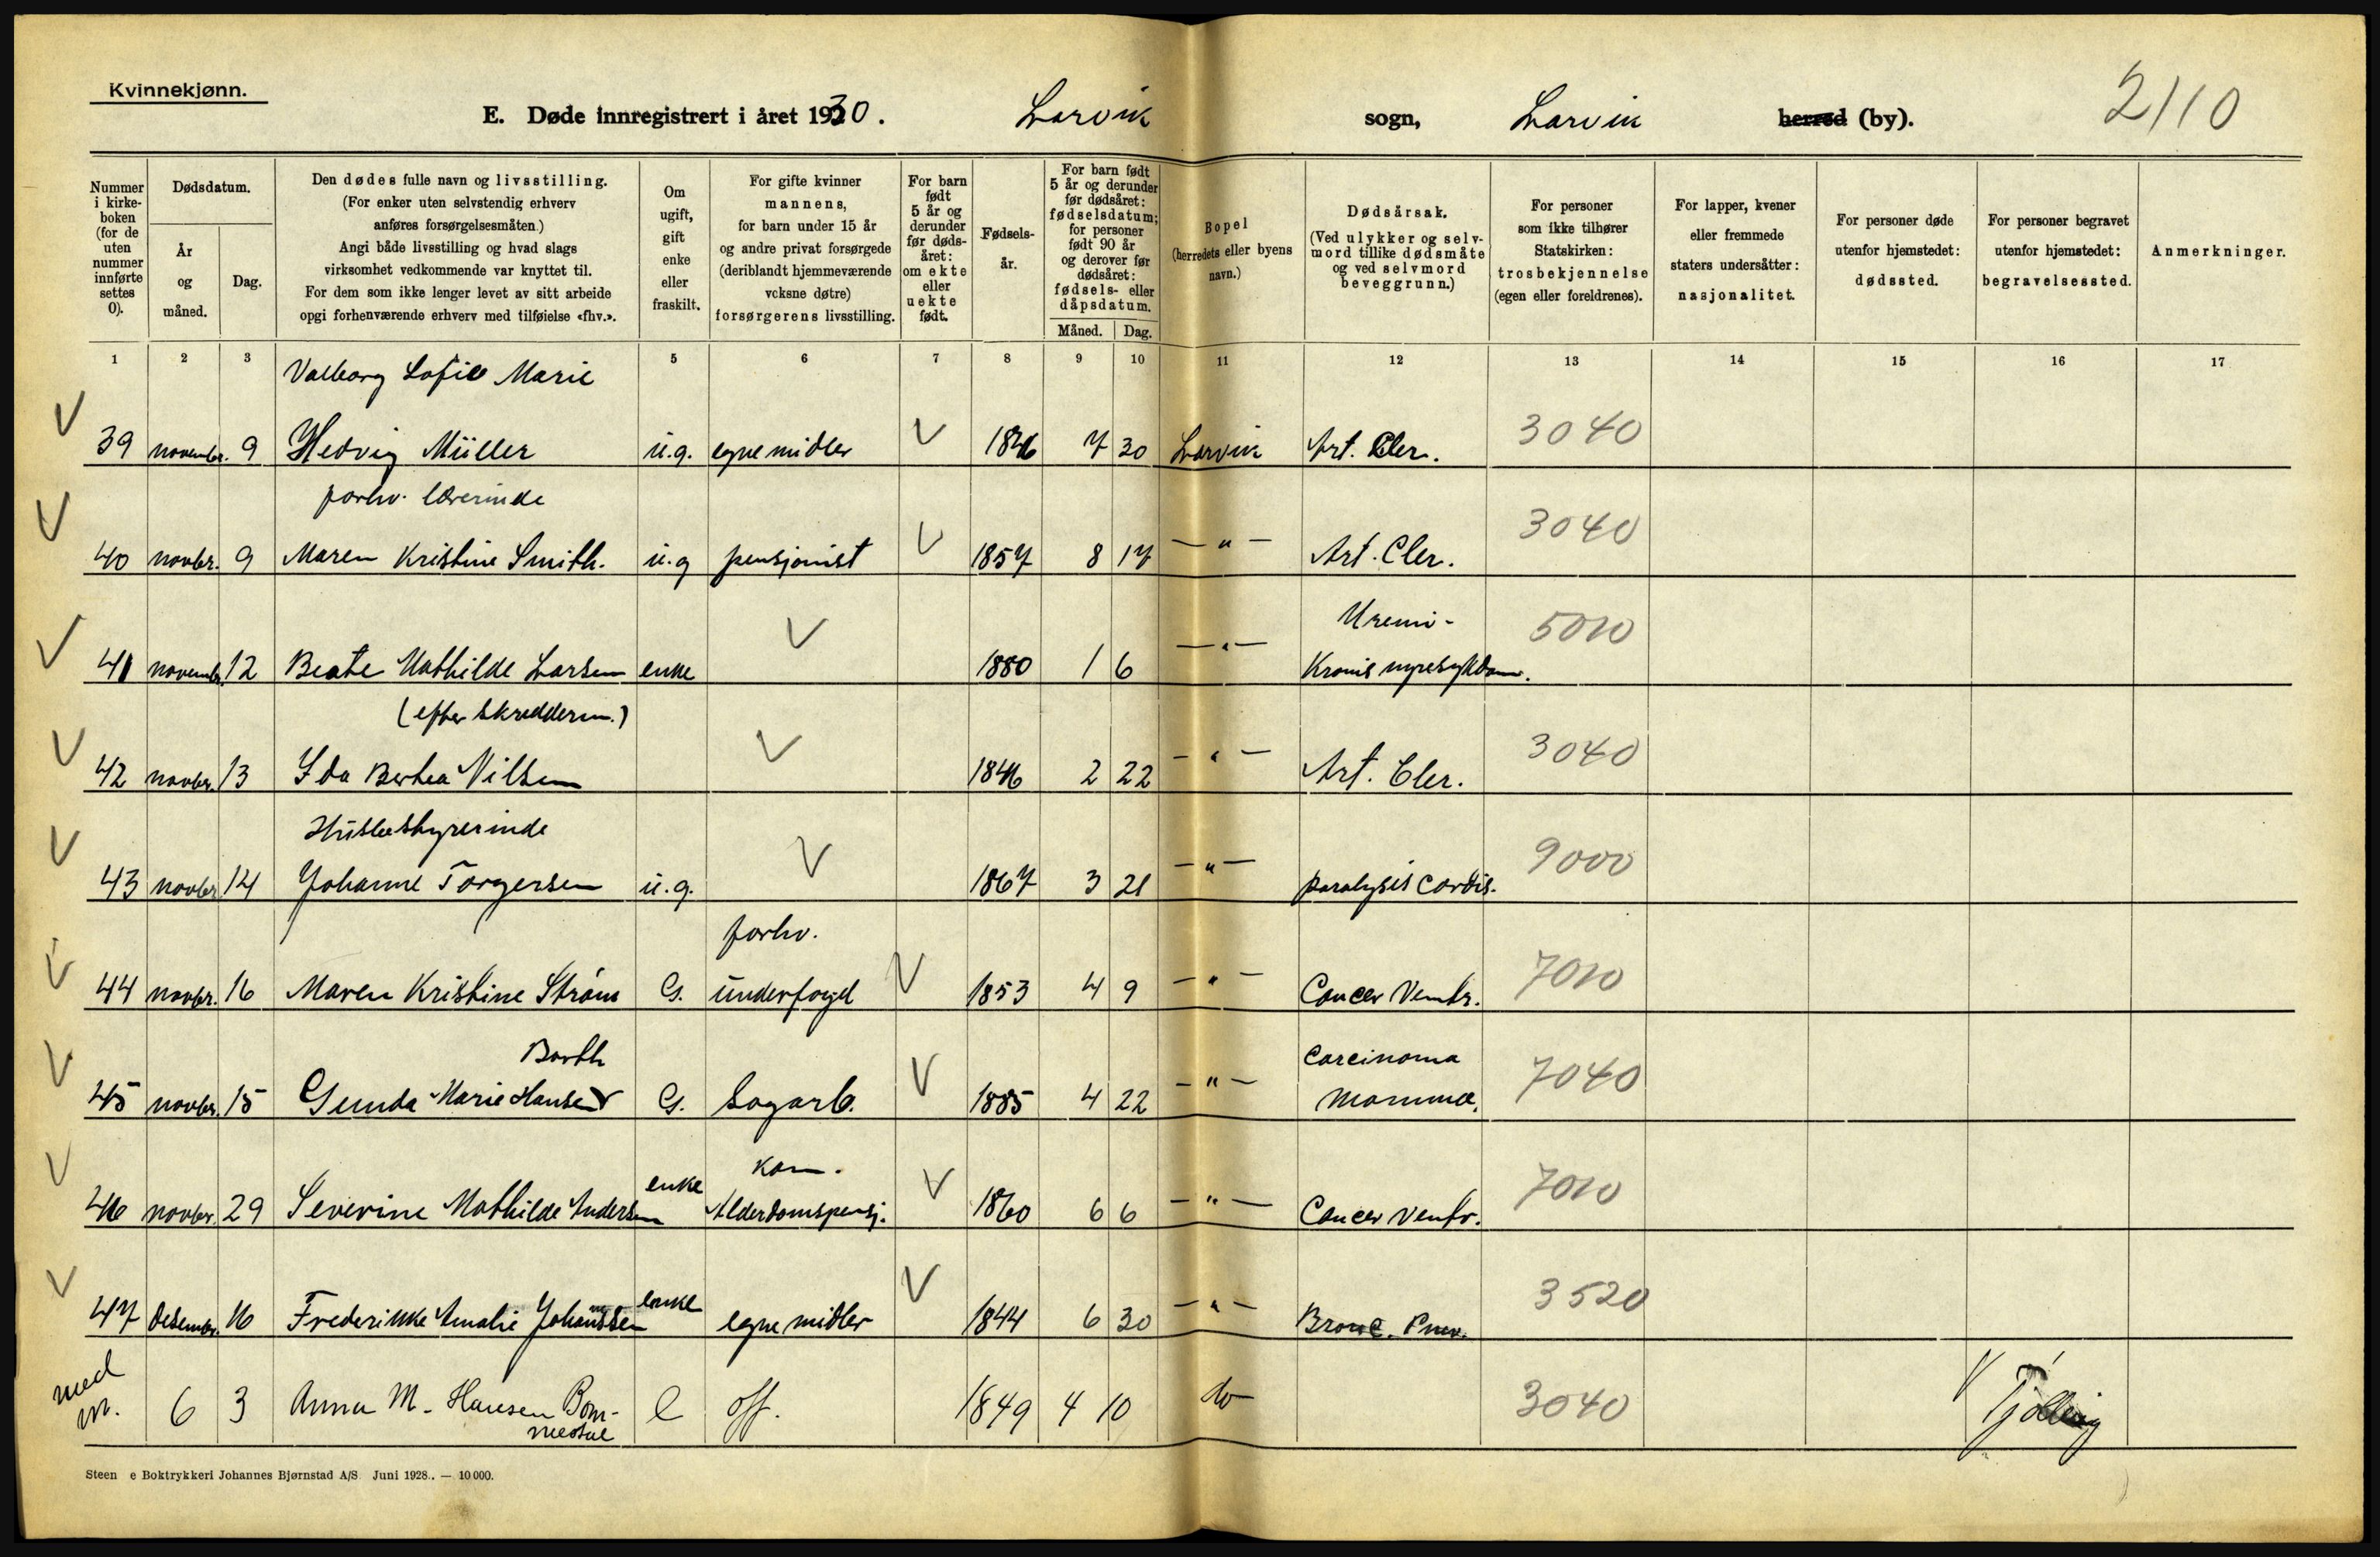 Kvinnekjønn.
E. Døde innregistrert i året 1930. Larvik sogn, Larvik herred (by). 2110
Nummer i kirke-boken (for de uten nummer innførte settes 0).
Dødsdatum.
År og måned.
Dag.
Den dødes fulle navn og livsstilling.
(For enker uten selvstendig erhverv
anføres forsørgelsesmåten.)
Angi både livsstilling og hvad slags
virksomhet vedkommende var knyttet til.
For dem som ikke lenger levet av sitt arbeide
opgi forhenværende erhverv med tilføielse «fhv.».
Om ugift, gift enke eller fraskilt.
For gifte kvinner
mannens,
for barn under 15 år
og andre privat forsørgede
(deriblandt hjemmeværende
voksne døtre)
forsørgerens livsstilling.
For barn født 5 år og derunder før døds-året: om ekte eller uekte født.
Fødsels-år.
For barn født 5 år og derunder før dødsåret: fødselsdatum; for personer født 90 år og derover før dødsåret: fødsels- eller dåpsdatum.
Måned. Dag.
Bopel (herredets eller byens navn.)
Dødsårsak.
(Ved ulykker og selv-
mord tillike dødsmåte
og ved selvmord
beveggrunn.)
For personer
som ikke tilhører
Statskirken:
trosbekjennelse
(egen eller foreldrenes).
For lapper, kvener
eller fremmede
staters undersåtter:
nasjonalitet.
For personer døde
utenfor hjemstedet:
dødssted.
For personer begravet
utenfor hjemstedet:
begravelsessted.
Anmerkninger.
1 2 3 5 6 7 8 9 10 11 12 13 14 15 16 17
Valborg Sofie Marie
39 novembr. 9 Hedvig Müller u.g. egne midler 1846 7 30 Larvik Art. Cler. 3040
forhv. lærerinde
40 novbr. 9 Maren Kristine Smith. u.g pensjonist 1857 8 17 — " — Art. Cler. 3040
Uremi-
41 novembr. 12 Beate Mathilde Larsen enke 1880 1 6 — " — Kronis nyresykdom. 5010
(efter skredderm.)
42 novbr. 13 Ida Berhea Nilsen 1846 2 22 — " — Art. Cler. 3040
Husbestyrerinde
43 novbr 14 Johanne Torgersen u.g. 1867 3 21 — " — paralysis cordis. 9000
forhv.
44 novbr. 16 Maren Kristine Strøm G. underfoged 1853 4 9 — " — Cancer Ventr. 7010
Barth Carcinoma
45 novbr. 15 Gunda Marie Hansen G. Sagarb. 1885 4 22 — " — Mammæ. 7040
enke kom.
46 novbr. 29 Severine Mathilde Andersen Alderdomspensj. 1860 6 6 — " — Cancer Ventr. 7010
47 desembr. 16 Frederikke Amalie Johanssen enke egne midler 1844 6 30 — " — Bronc. Pnev. 3520
med nr. 6 3 Anna M. Hansen Bom-mestul e off. 1849 4 10 do 3040 Tjølling
Steen e Boktrykkeri Johannes Bjørnstad A/S Juni 1928. — 10 000.